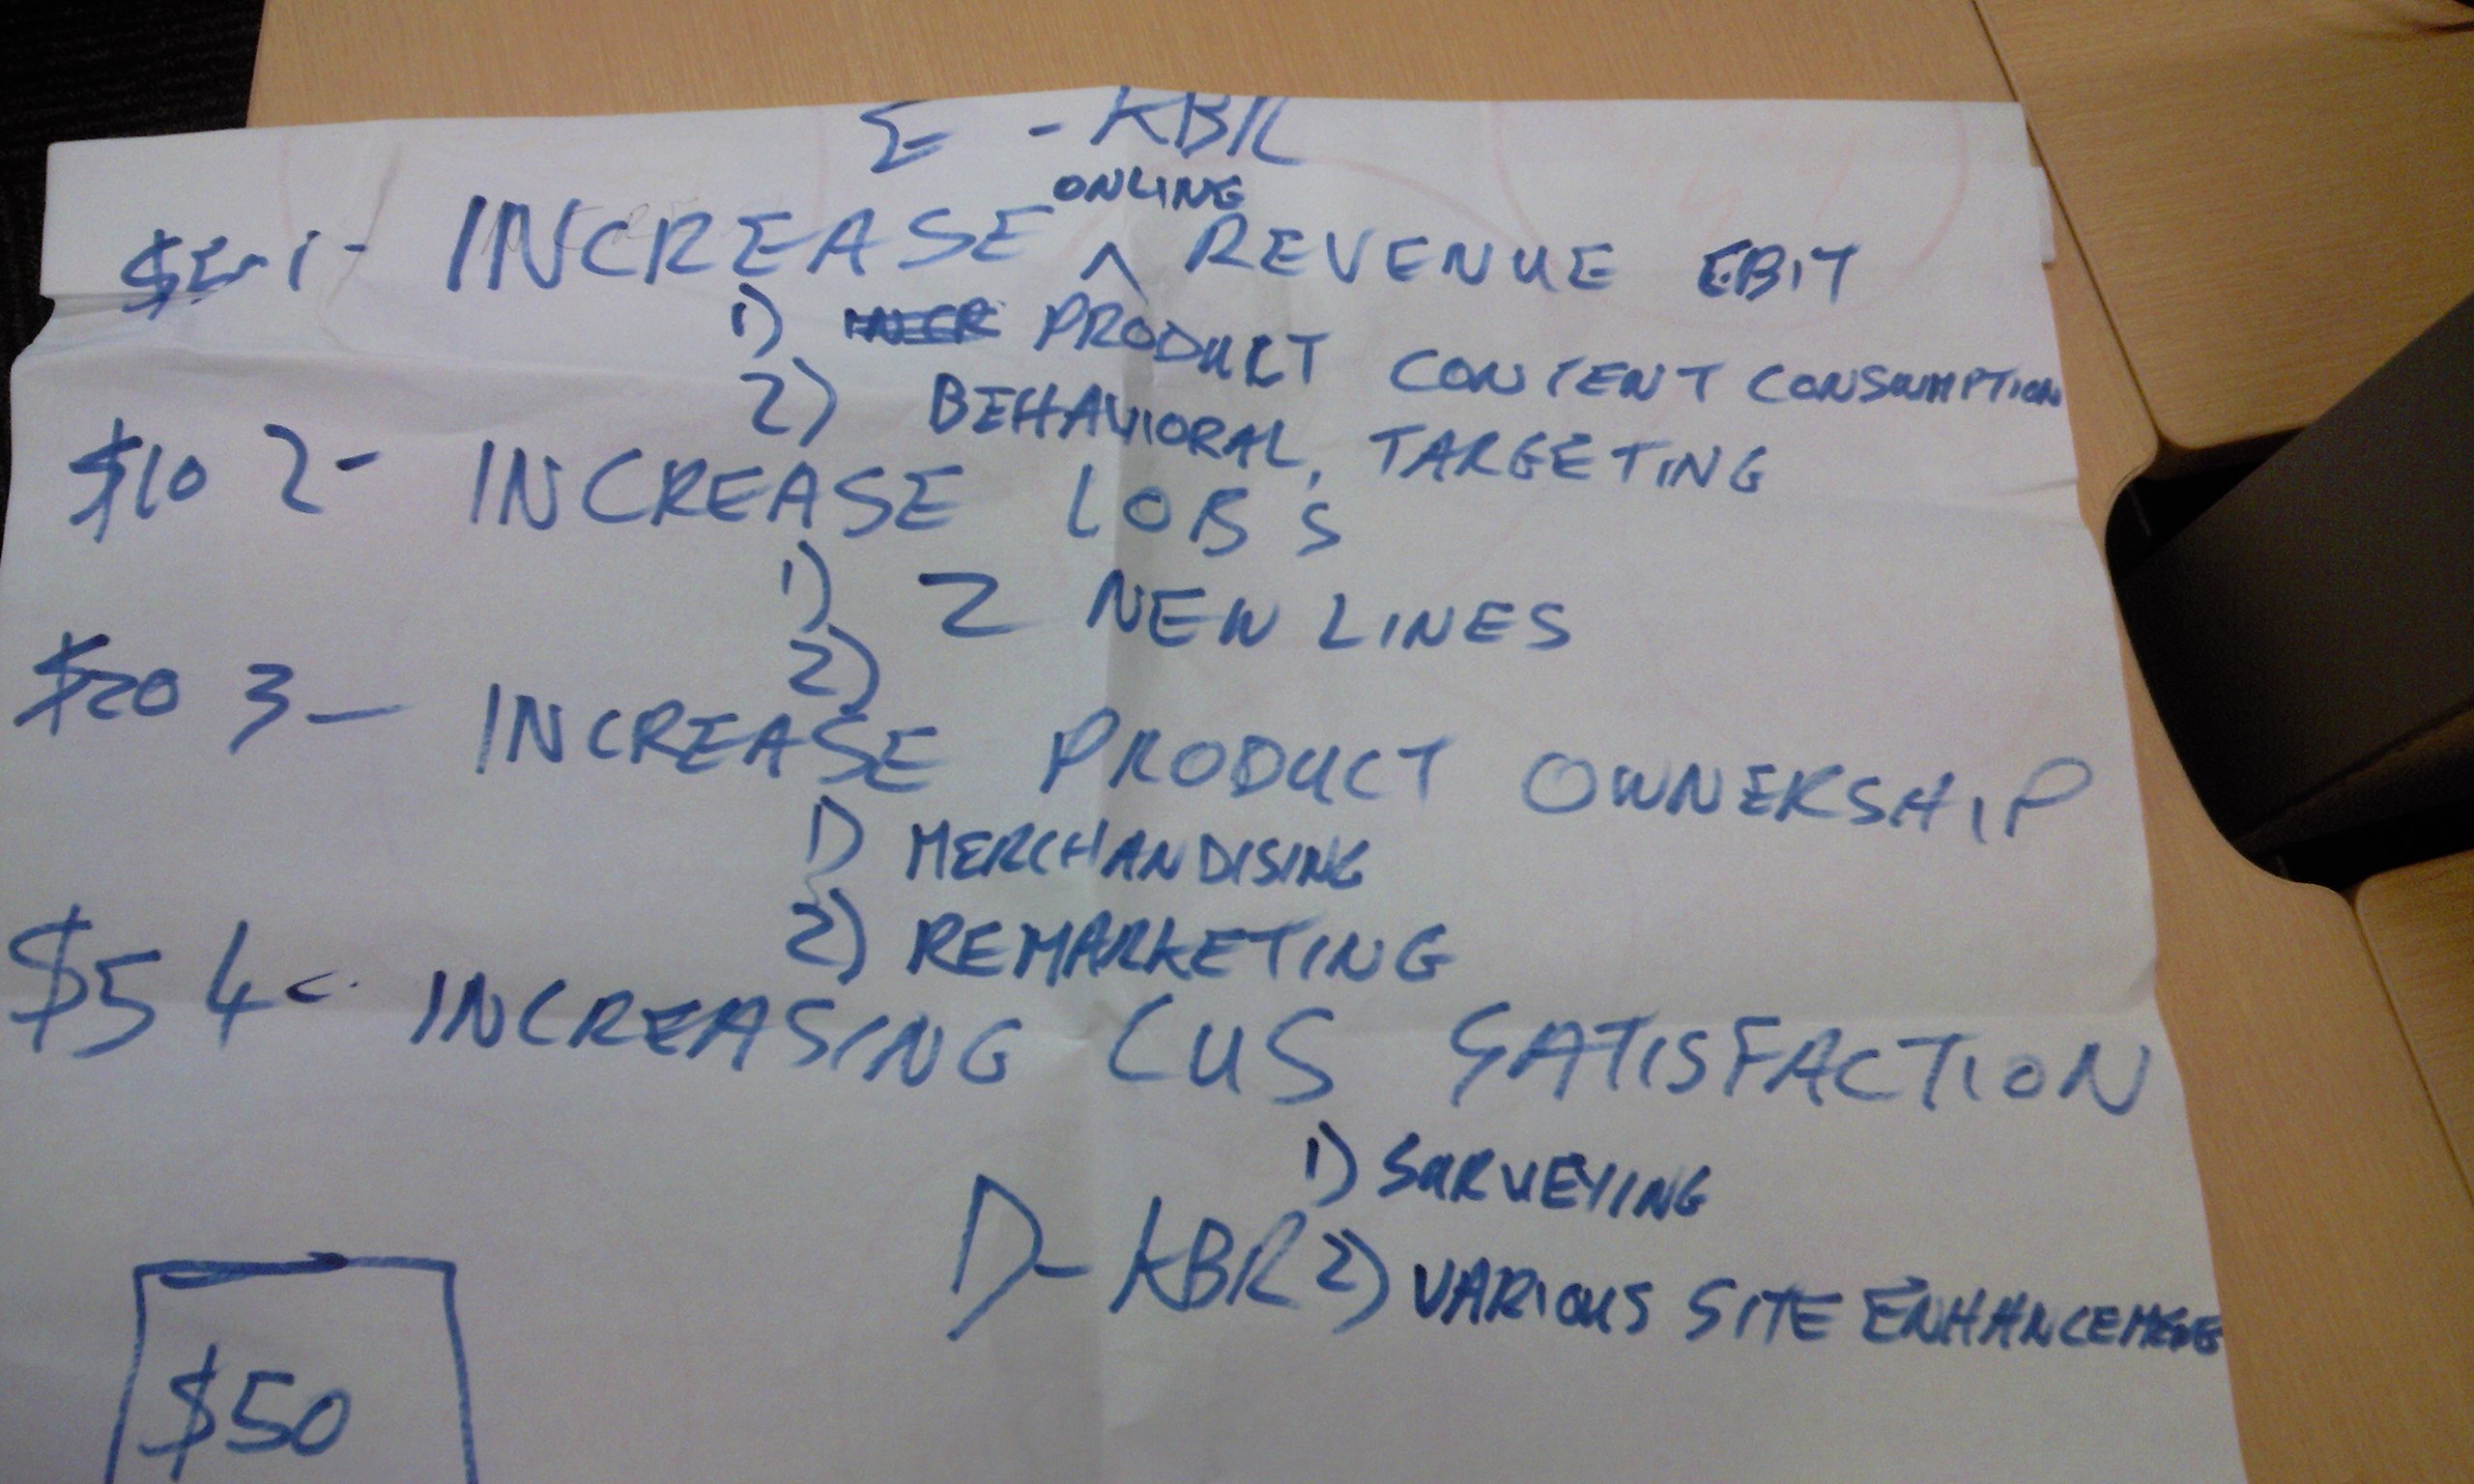 E - KBR
ONLINE
1- INCREASE ^ REVENUE EBIT
1) PRODUCT CONTENT CONSUMPTION
2) BEHAVIORAL, TARGETING
$10 2- INCREASE LOB'S
1) 2 NEW LINES
2)
$20 3- INCREASE PRODUCT OWNERSHIP
1) MERCHANDISING
2) REMARKETING
$5 4- INCREASING CUS SATISFACTION
1) SURVEYING
D-KBR 2) VARIOUS SITE
$50